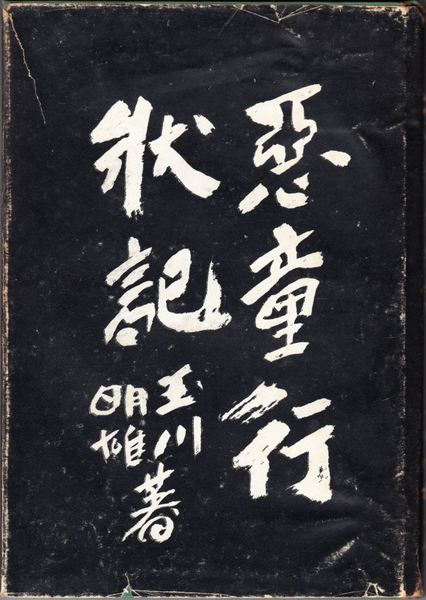 惡童行
狀記
玉川
明雄
著